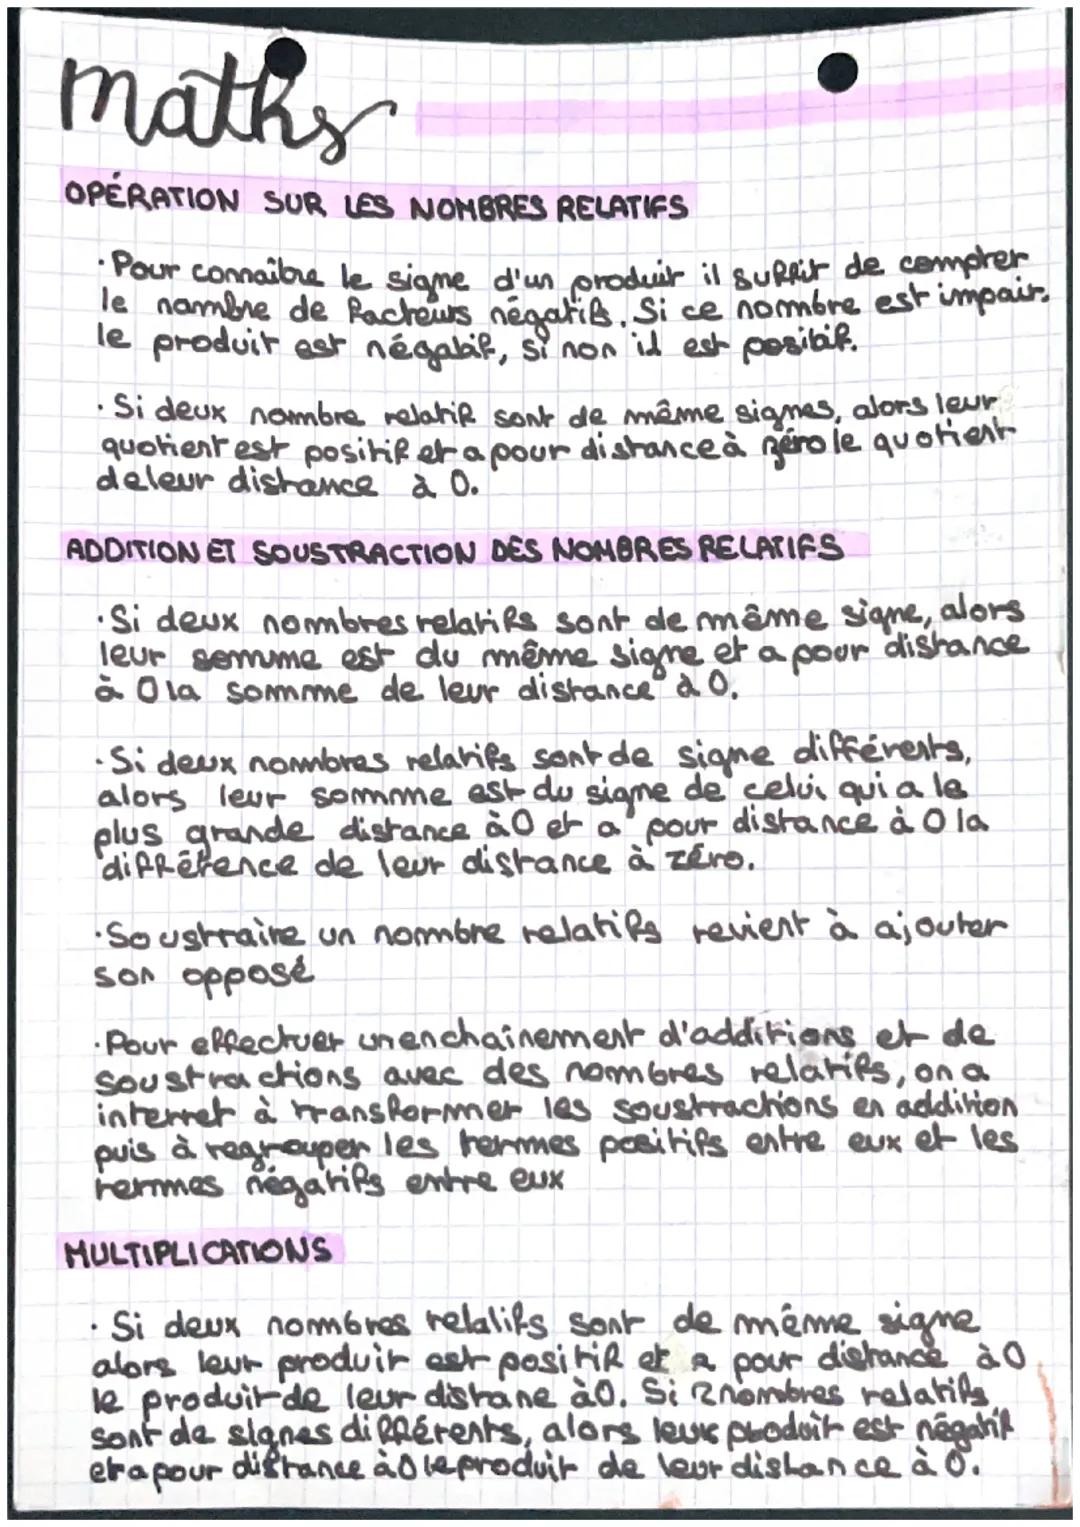 Maths
OPÉRATION SUR LES NOMBRES RELATIFS
· Pour connaître le signe d'un produit il suffit de compter
le nombre de facteurs négatifs. Si ce nombre est impair,
le produit est négatif, si non il est positif.
· Si deux nombre relatif sont de même signes, alors leur
quotient est positif et a pour distance à zéro le quotient
de leur distance à 0.
ADDITION ET SOUSTRACTION DES NOMBRES RELATIFS
· Si deux nombres relatifs sont de même signe, alors
leur somme est du même signe et a pour distance
à 0 la somme de leur distance à 0.
· Si deux nombres relatifs sont de signe différents,
alors leur somme est du signe de celui qui a le
plus grande distance à 0 et a pour distance à 0 la
différence de leur distance à zéro.
· Soustraire un nombre relatifs revient à ajouter
son opposé
· Pour effectuer un enchaînement d'additions et de
soustractions avec des nombres relatifs, on a
interret à transformer les soustractions en addition
puis à regrouper les termes positifs entre eux et les
termes négatifs entre eux
MULTIPLICATIONS
· Si deux nombres relatifs sont de même signe
alors leur produit est positif et a pour distance à 0
le produit de leur distane à 0. Si 2 nombres relatifs
sont de signes différents, alors leur produit est négatif
et a pour distance à 0 le produit de leur distance à 0.